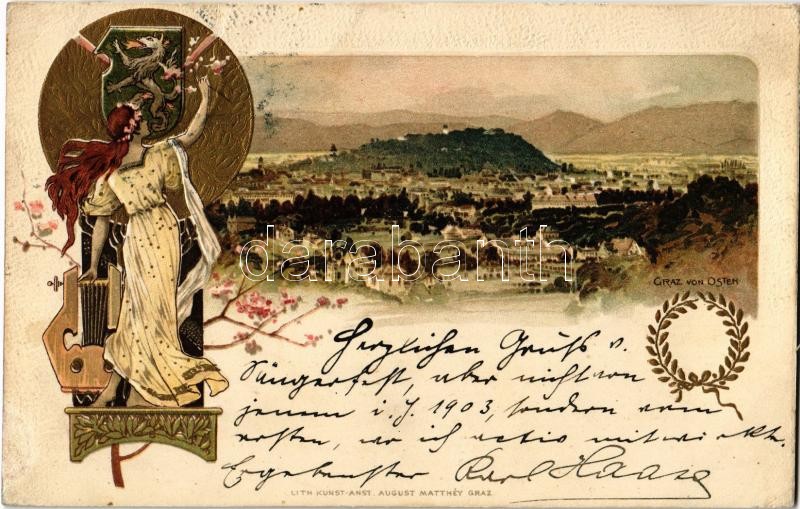 darabanth
GRAZ VON OSTEN
Herzlichen Gruß v.
Sängerfest, aber nicht von
jenem i. J. 1903, sondern vom
ersten, wo ich activ mitwirkte.
Ergebenster Karl Haase
LITH KUNST-ANST. AUGUST MATTHÉY GRAZ